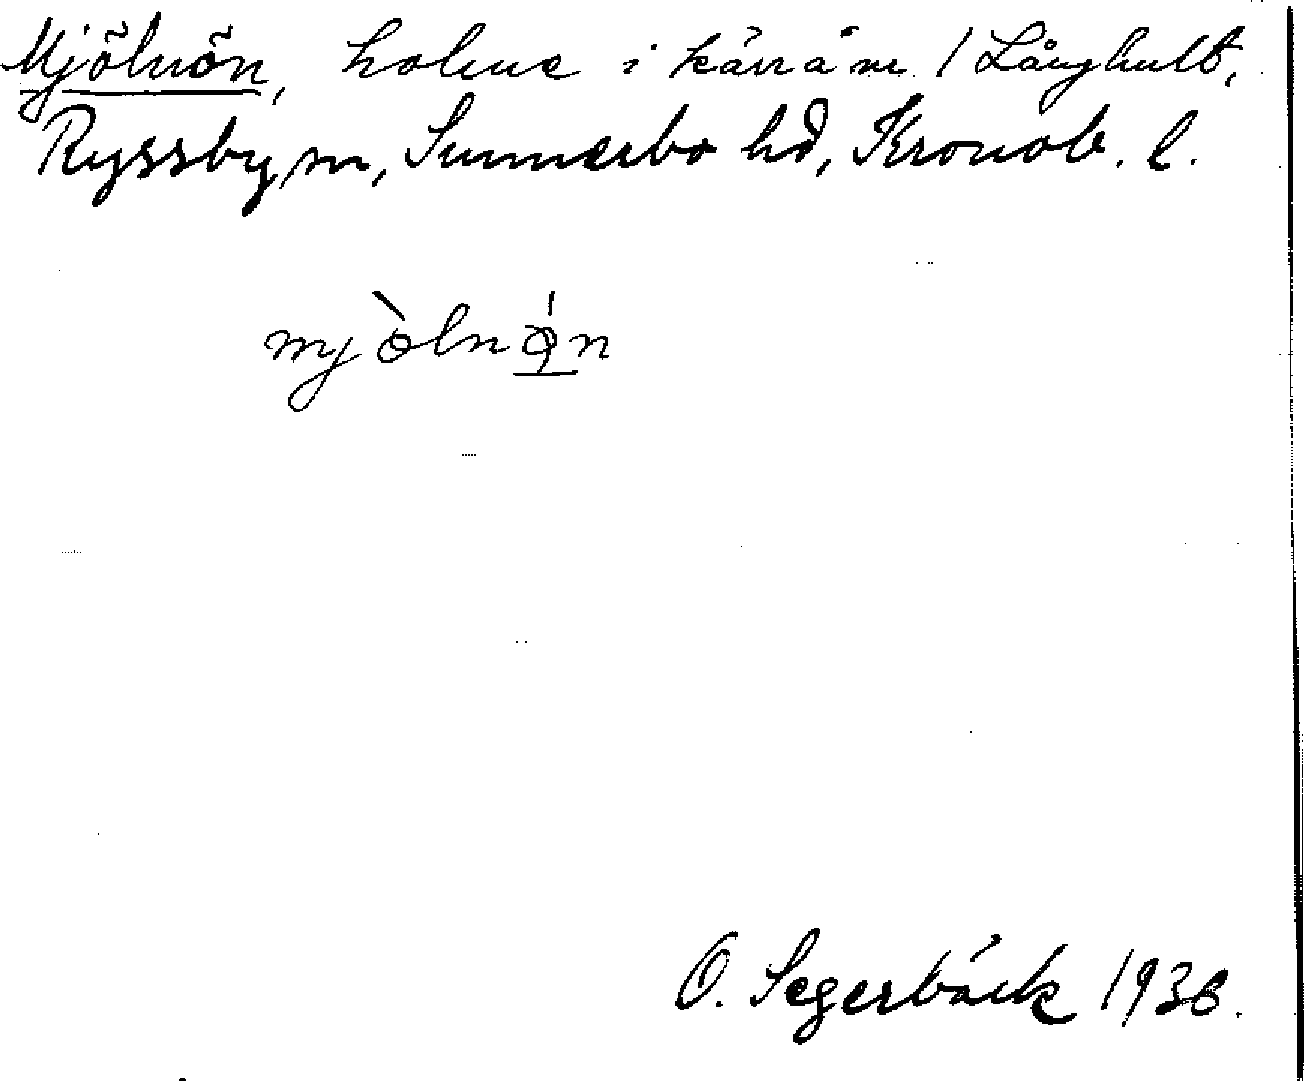 Mjölnön, holme i kärrå'n. / Långhult,
Ryssby sn, Sunnerbo hd, Kronob. l.
mjòlnǫ́n
O. Segerbäck 1936.